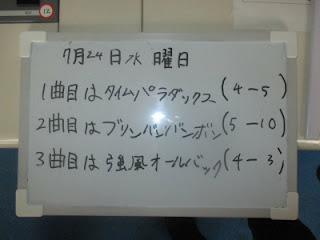 7月24日水曜日
1曲目はタイムパラダックス(4-5)
2曲目はブリンバンバンボン(5-10)
3曲目は強風オールバック(4-3)